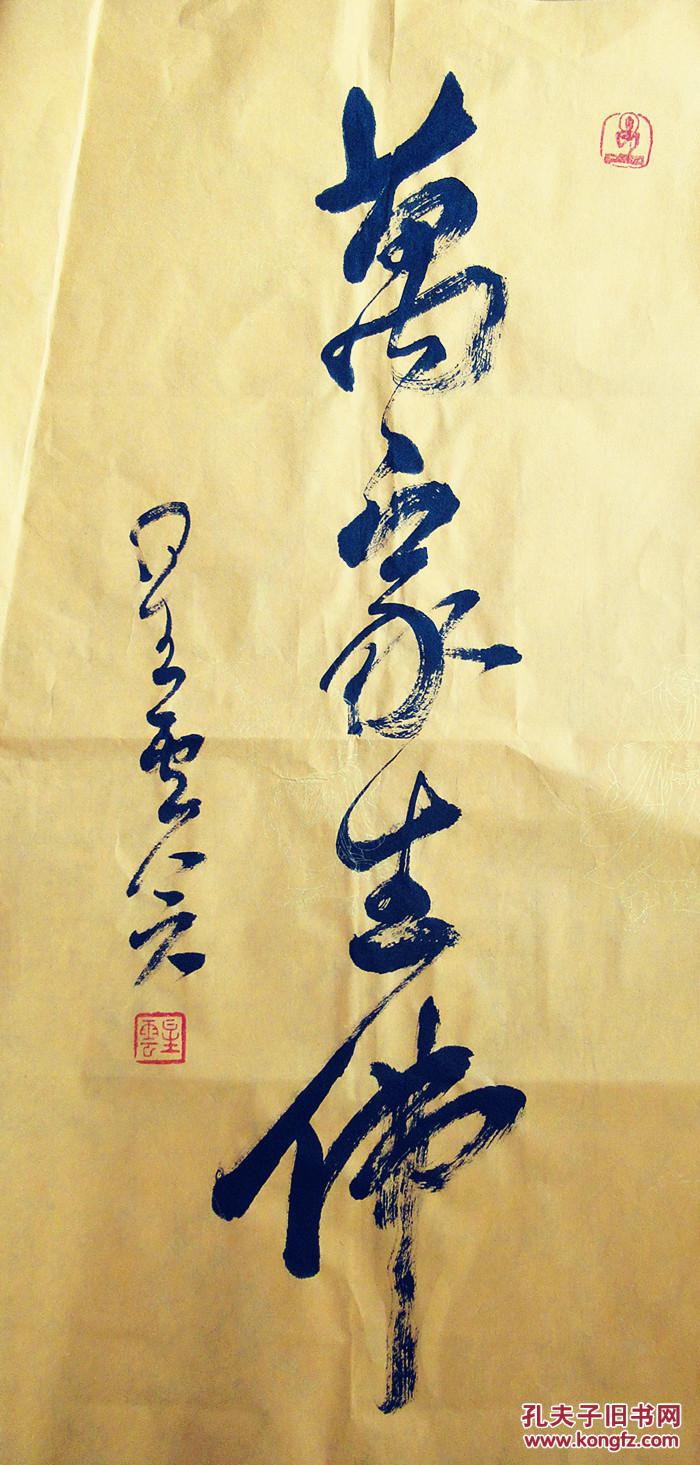 萬家生佛
星雲
星雲
孔夫子旧书网
www.kongfz.com